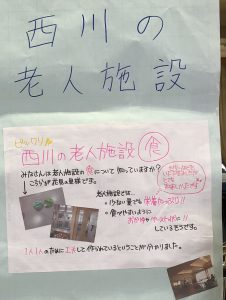 西川の
老人施設
ビックリ
西川の老人施設 食
みなさんは老人施設の食について知っていますか?
こちらが
です。
老人施設では…
・少ない量でも栄養たっぷり!!
・食べやすいように
おかゆや
しているそうです。
1人1人のために工夫して作られているということが分かりました。